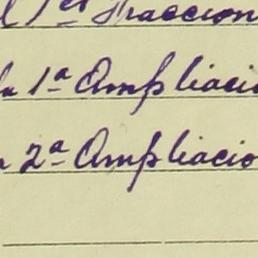 l 1er Fraccion
la 1ª Ampliacio
a 2ª Ampliacio